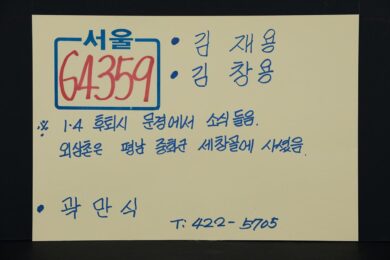 서울
64359
• 김 재 용
• 김 창 용
※ 1·4 후퇴시 문경에서 소식 들음.
외삼촌은 평남 중화군 세창골에 사셨음.
• 곽 만 식
T. 422-5705